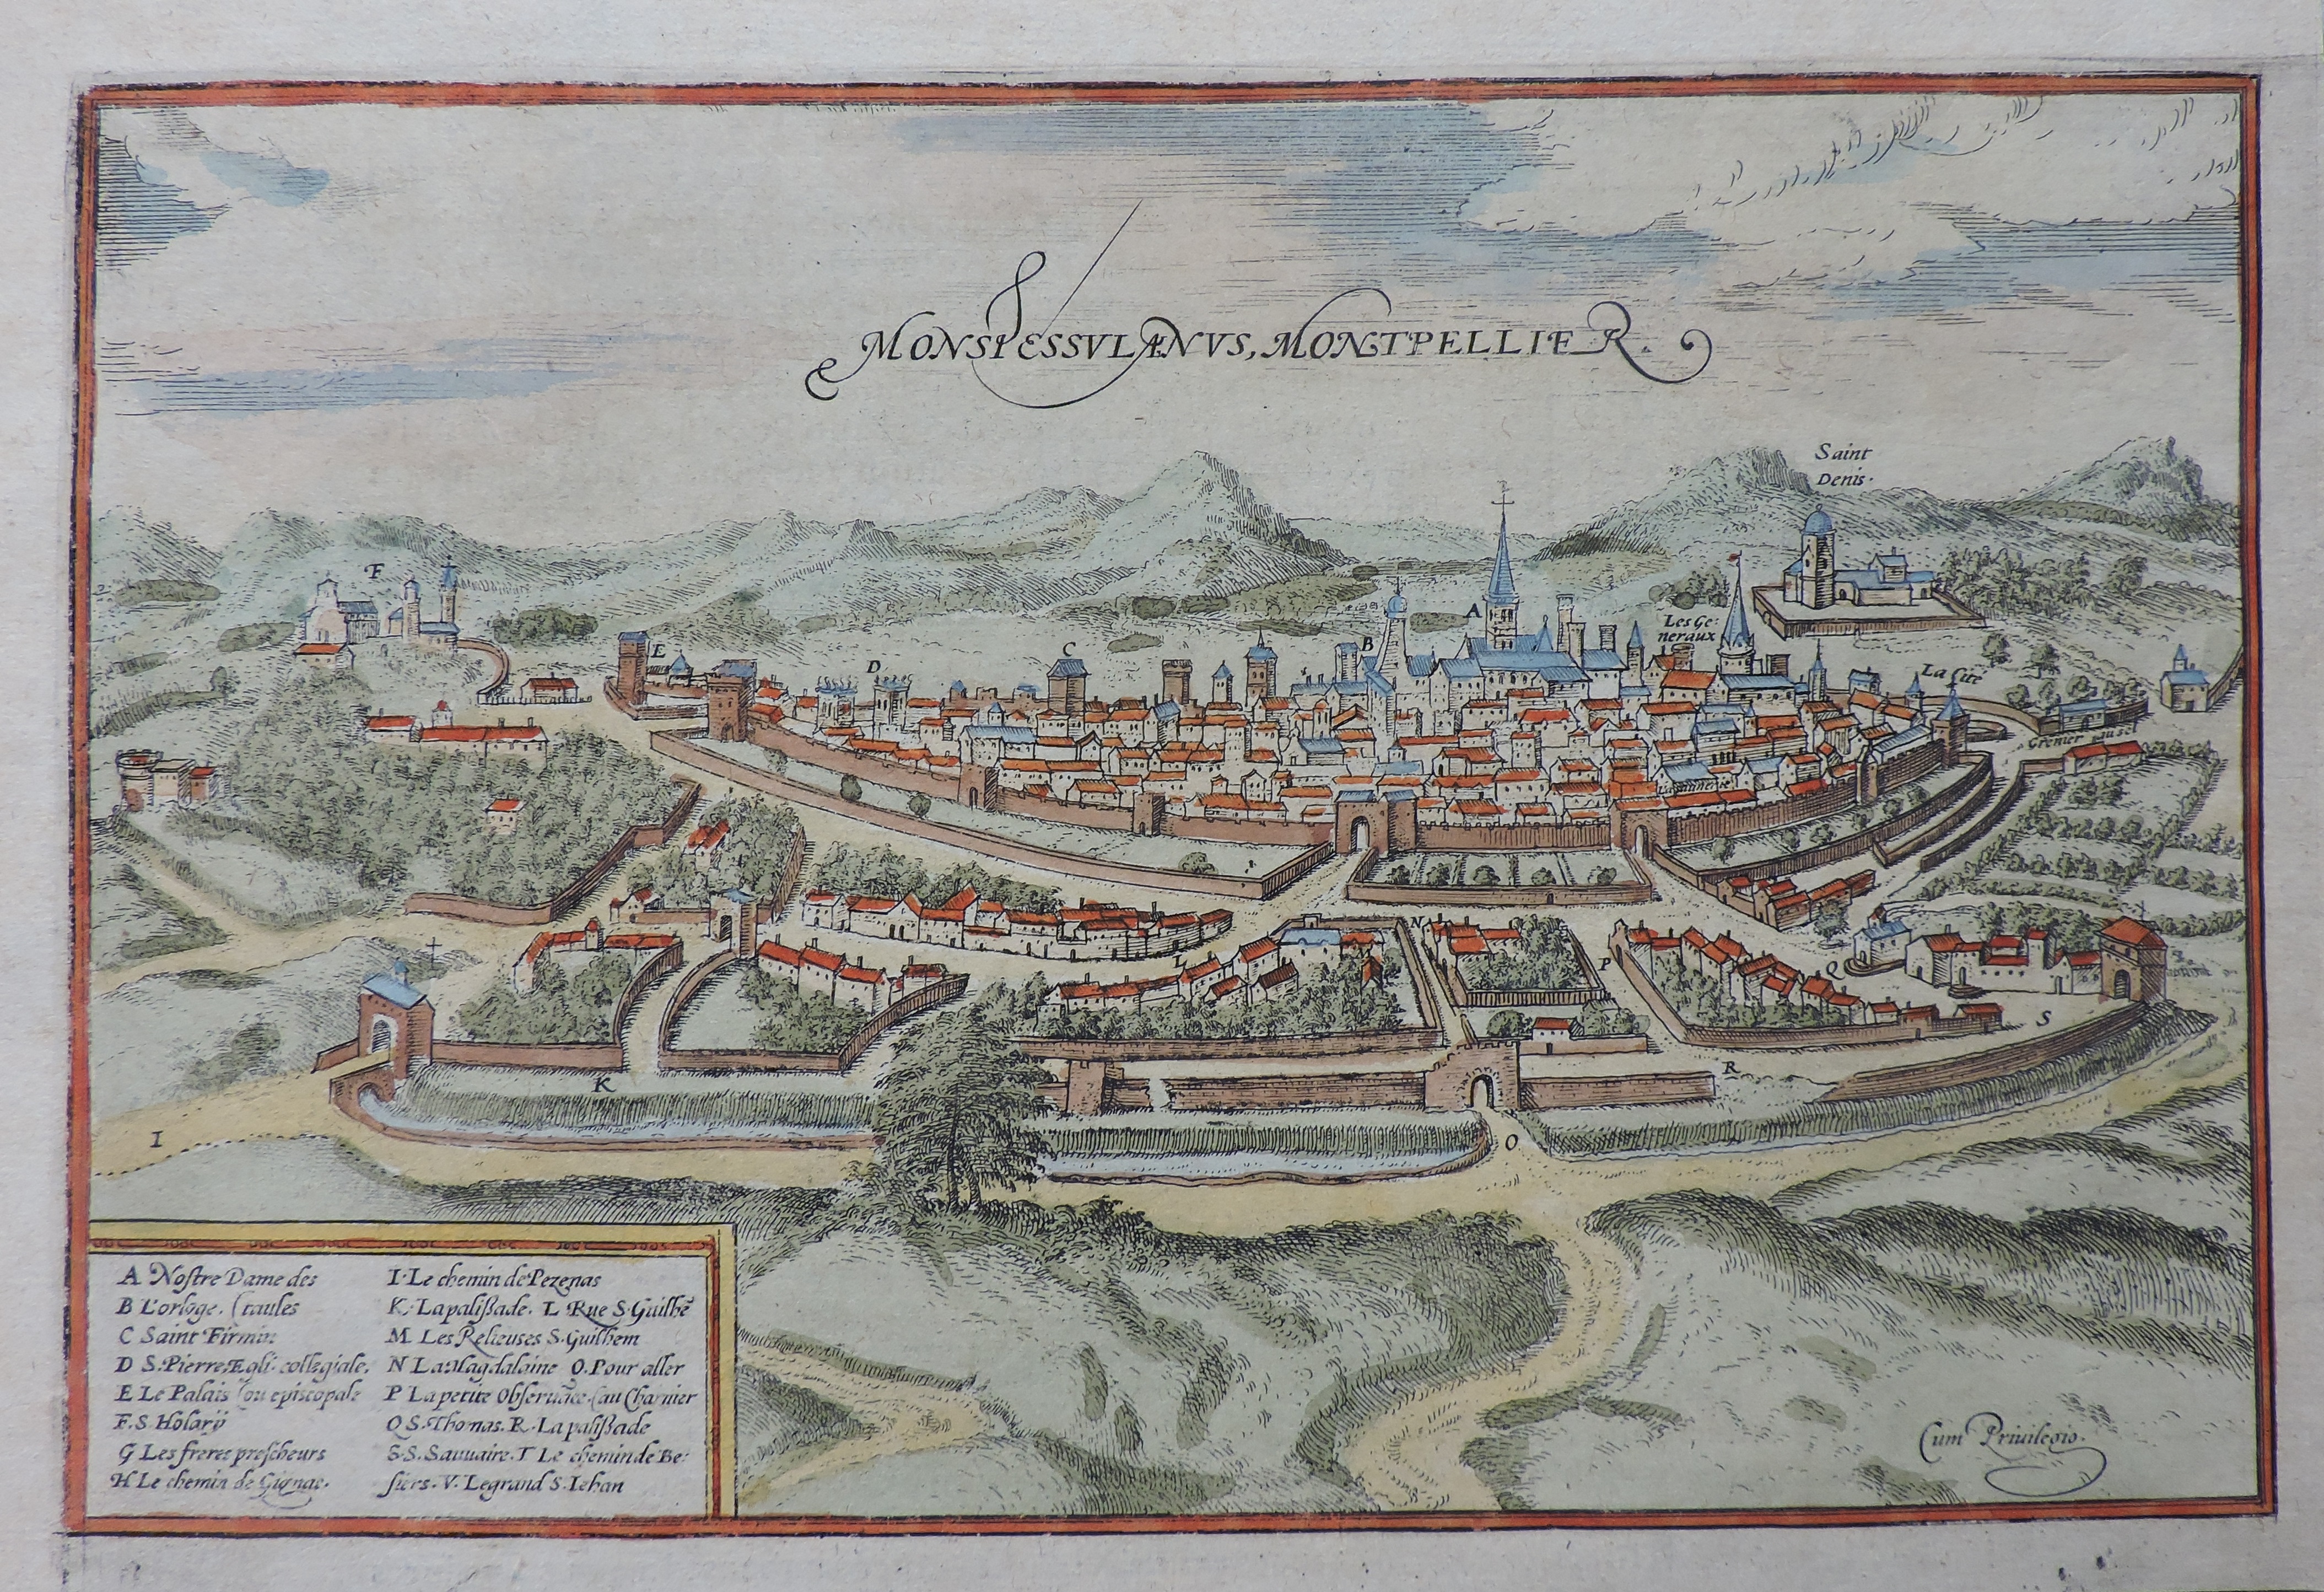 MONSPESSVLANVS, MONTPELLIER.
Saint
Denis.
F
E
D
C
B
A
Les Ge:
neraux
La Cite
Grenier au sel
N
L
P
Q
S
K
R
I
O
A Nostre Dame des
B L'orloge. (taules
C Saint Firmin
D S. Pierre, Egli. collegiale,
E Le Palais (ou episcopale
F. S. Holarÿ
G Les freres prescheurs
H. Le chemin de Gignac.
I. Le chemin de Pezenas
K. La palißade. L Rue S. Guilhē
M Les Relieuses S. Guilhem
N La Magdalaine O. Pour aller
P La petite Obseruāce. (au Charnier
Q S. Thomas. R. La palißade
S. S. Sauuaire. T Le chemin de Be:
siers. V. Le grand S. Iehan
Cum Priuilegio.